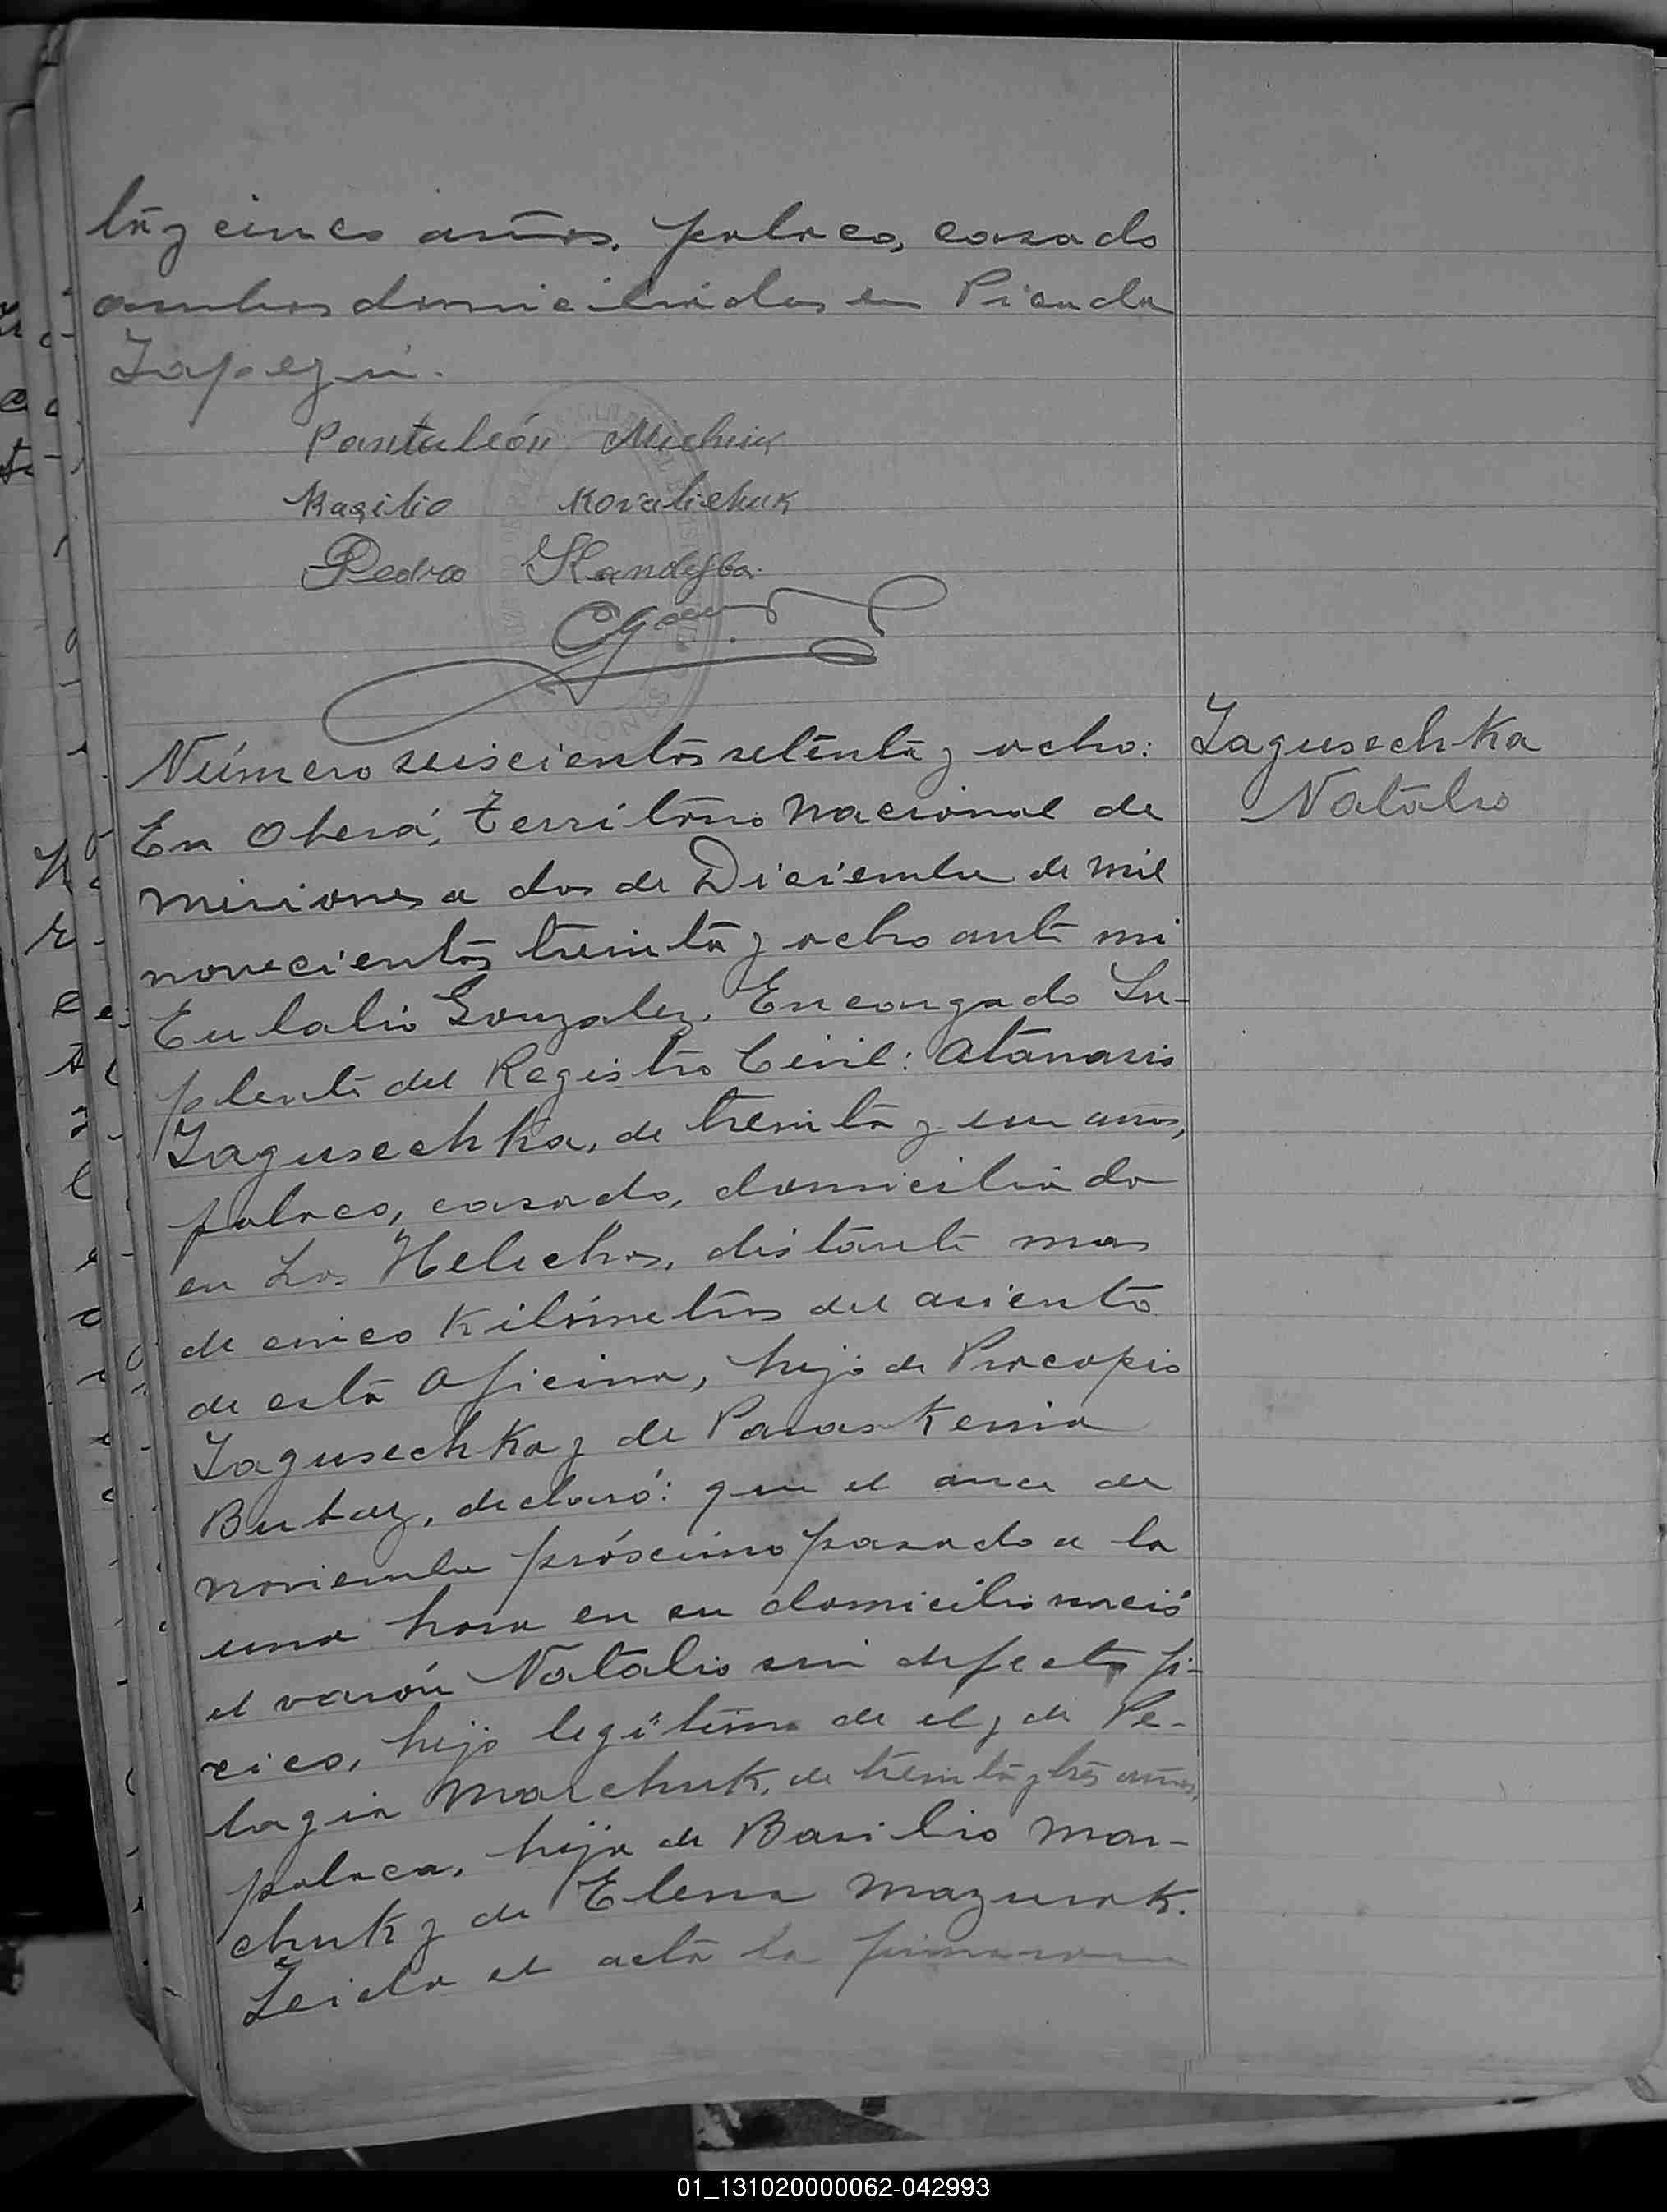 ta y cinco años, polaco, casado
ambos domiciliados en Picada
Yapeyú.
Pantaleón Michiuk
Basilio Kovalichuk
Pedro Kandyba.
Número seiscientos setenta y ocho:
Yagusechka
Natalio
En Oberá, Territorio Nacional de
Misiones a dos de Diciembre de mil
novecientos treinta y ocho ante mi
Eulalio Gonzalez, Encargado Su-
plente del Registro Civil: Atanasio
Yagusechka, de treinta y un años,
polaco, casado, domiciliado
en Los Helechos, distante mas
de cinco Kilómetros del asiento
de esta Oficina, hijo de Procopio
Yagusechka y de Paraskenia
Butaz, declaró: que el once de
noviembre próscimo pasado a la
una hora en su domicilio nació
el varón Natalio sin defecto fi-
sico, hijo legítimo de el y de Pe-
lagia Marchuk, de treinta y tres años,
polaca, hija de Basilio Mar-
chuk y de Elena Mazurok.
Leida el acta la firmaron
01_131020000062-042993